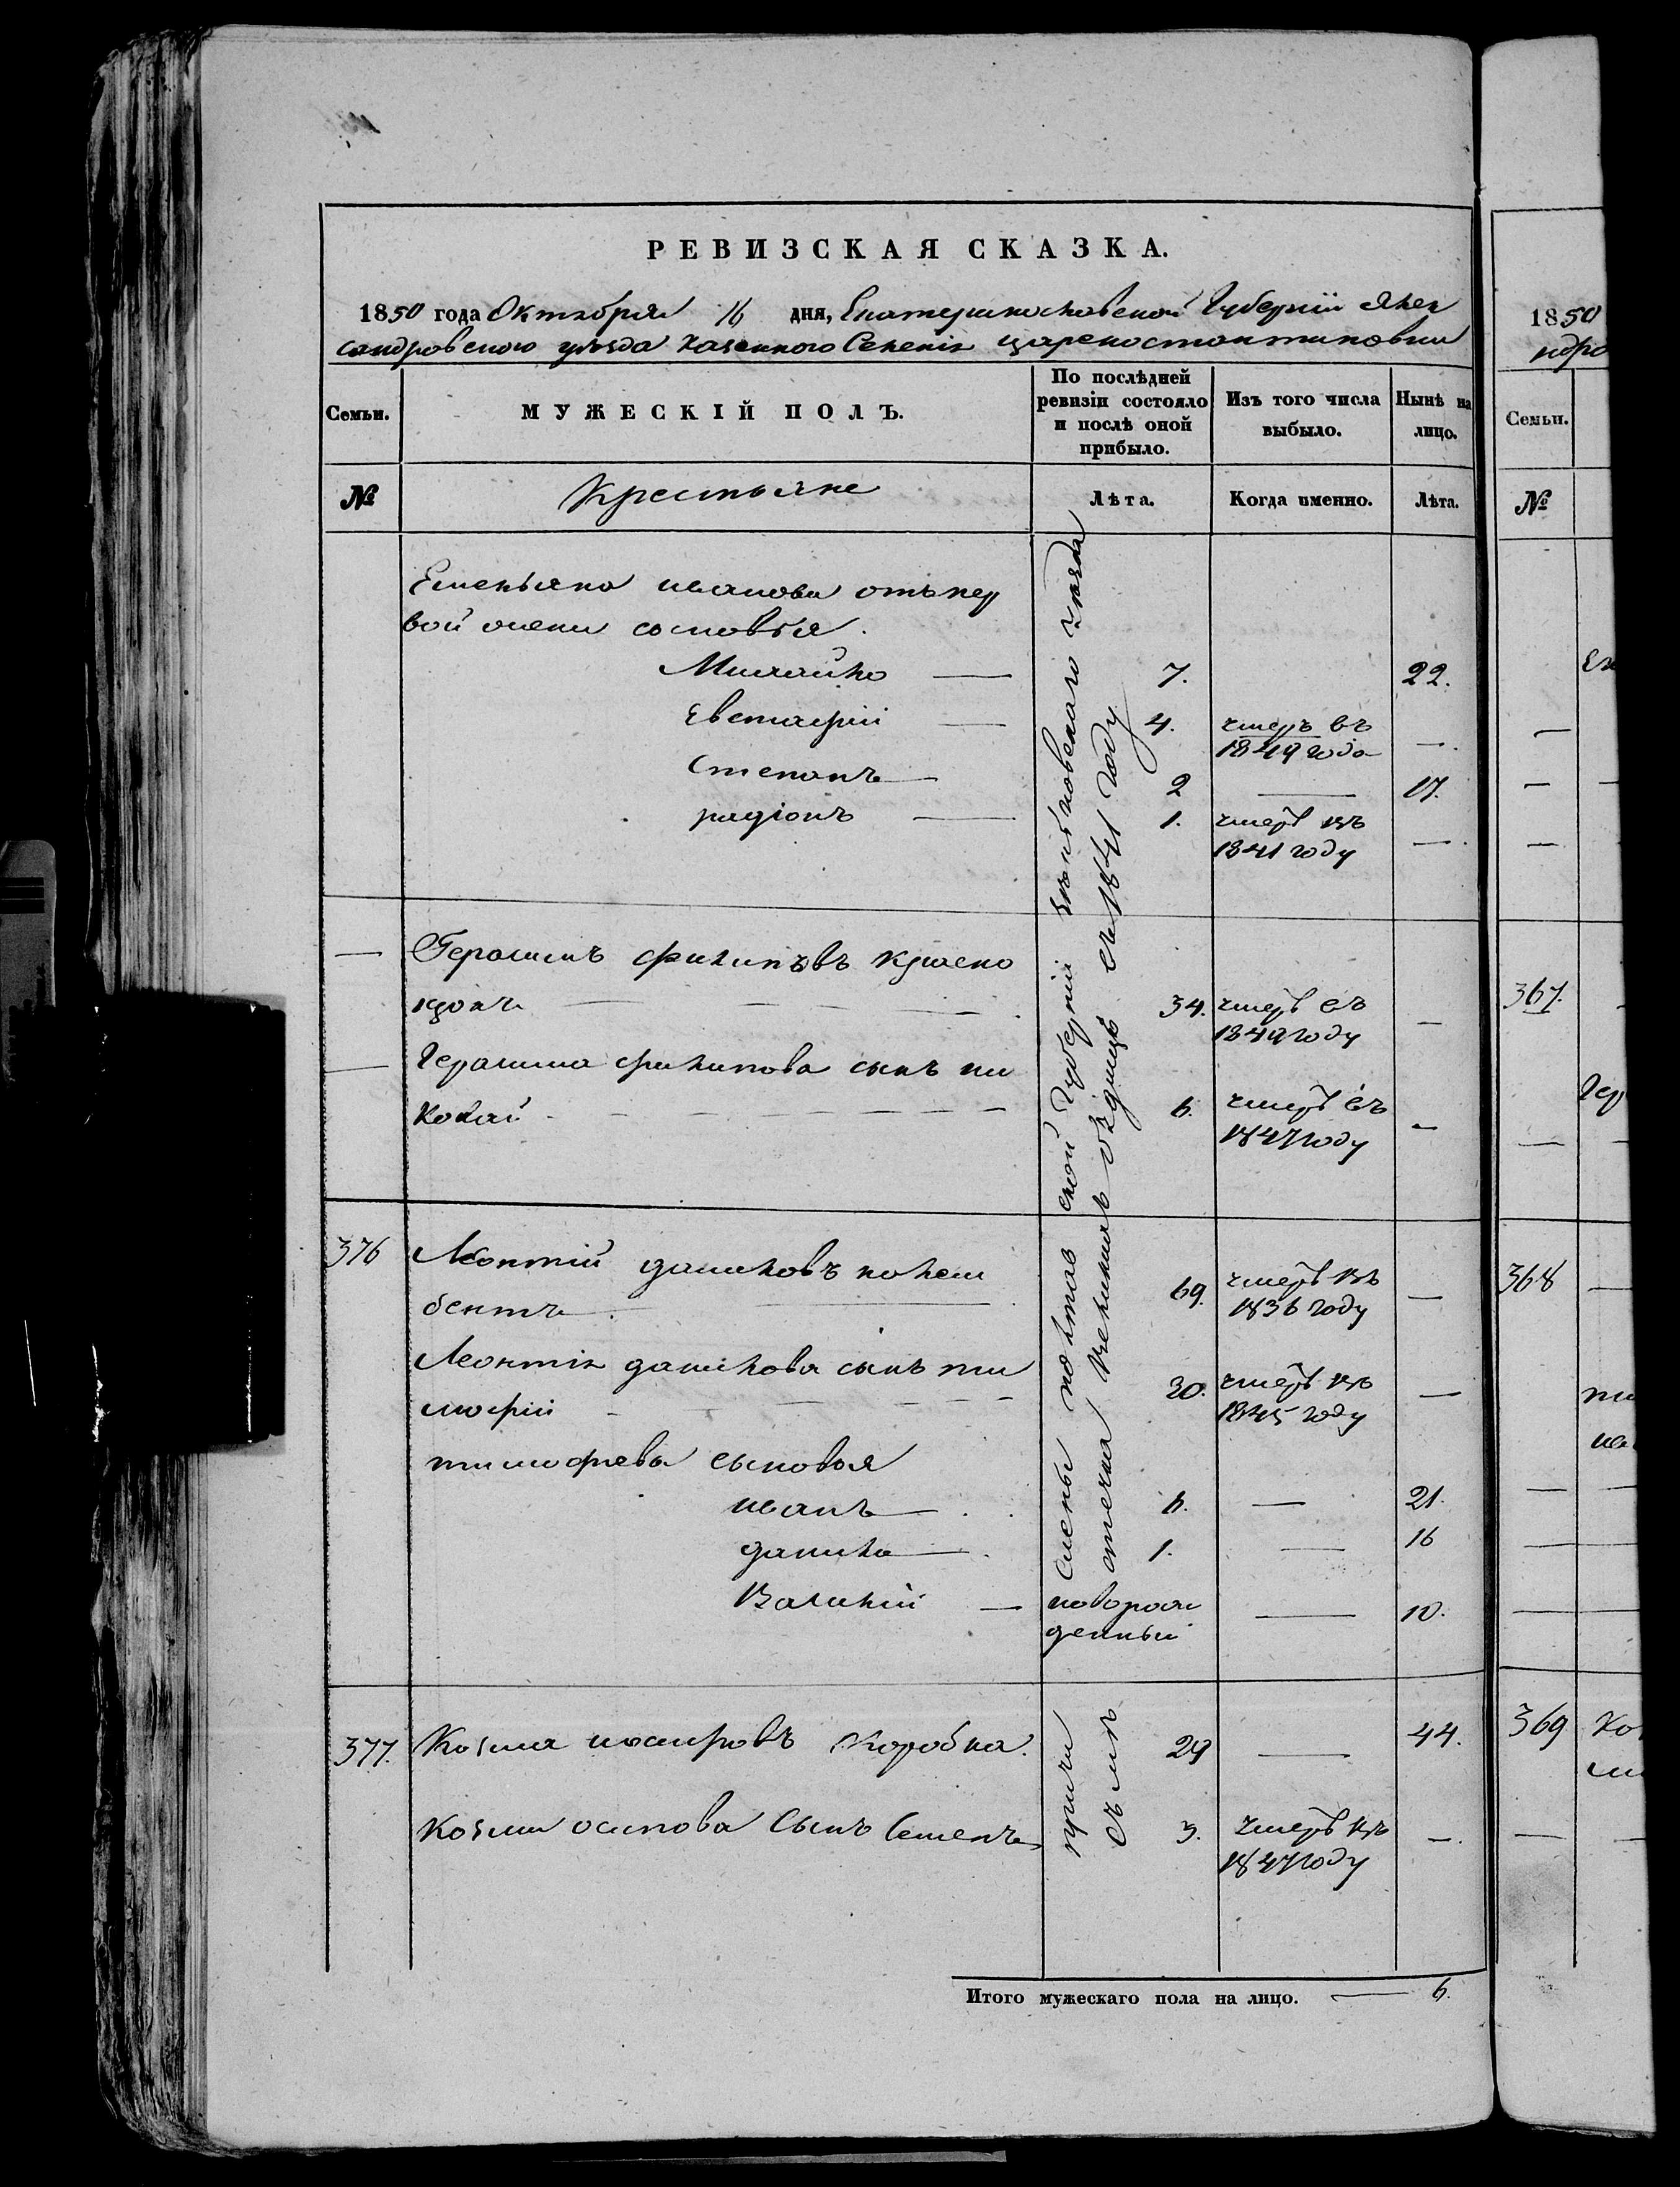 РЕВИЗСКАЯ СКАЗКА.
1850 года Октября 16 дня, Екатеринославской Губерніи Алек
сандровского уѣзда казенного Селенія Цареконстантиновки
Семьи.
МУЖЕСКІЙ ПОЛЪ.
По послѣдней
ревизіи состояло
и послѣ оной
прибыло.
Изъ того числа
выбыло.
Нынѣ на
лицо.
№
Крестьяне
Лѣта.
Когда именно.
Лѣта.
Емельяна иванова отъ пер
вой жены сыновья.
Михайло — 7. 22.
Евстафій — 4. умеръ въ
1849 года —.
Степанъ — 2 — 17.
радіонъ — 1. умеръ въ
1841 году —.
— Герасимъ филиповъ
34. умеръ въ
1849 году —
— Герасима филипова сынъ ни
колай - - - 6. умеръ въ
1847 году -
376 Леонтій даниловъ
69. умеръ въ
1836 году —
Леонтія данилова сынъ ти
мофій - - - 30. умеръ въ
1845 году —
тимофѣева сыновья
иванъ — 6. — 21.
данило — 1. — 16
Василій — новорож
денный — 10.
377. Козма иосифовъ Коробка. 29 — 44.
Козмы осипова Сынъ Семенъ 3. умеръ въ
1847 году —.
Полтавской губерніи
уѣзда
въ 1841 году
Итого мужескаго пола на лицо. — 6.
1850
ндро
Семьи.
№
367.
Гер
368
369 Ко